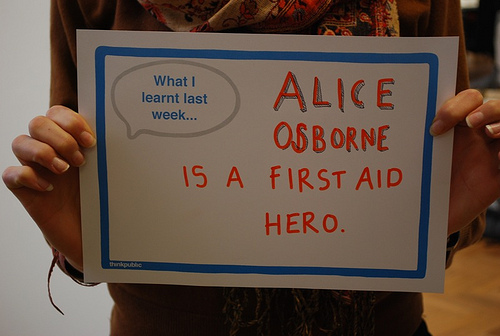 What I
learnt last
week...
ALICE
OSBORNE
IS A FIRST AID
HERO.
thinkpublic